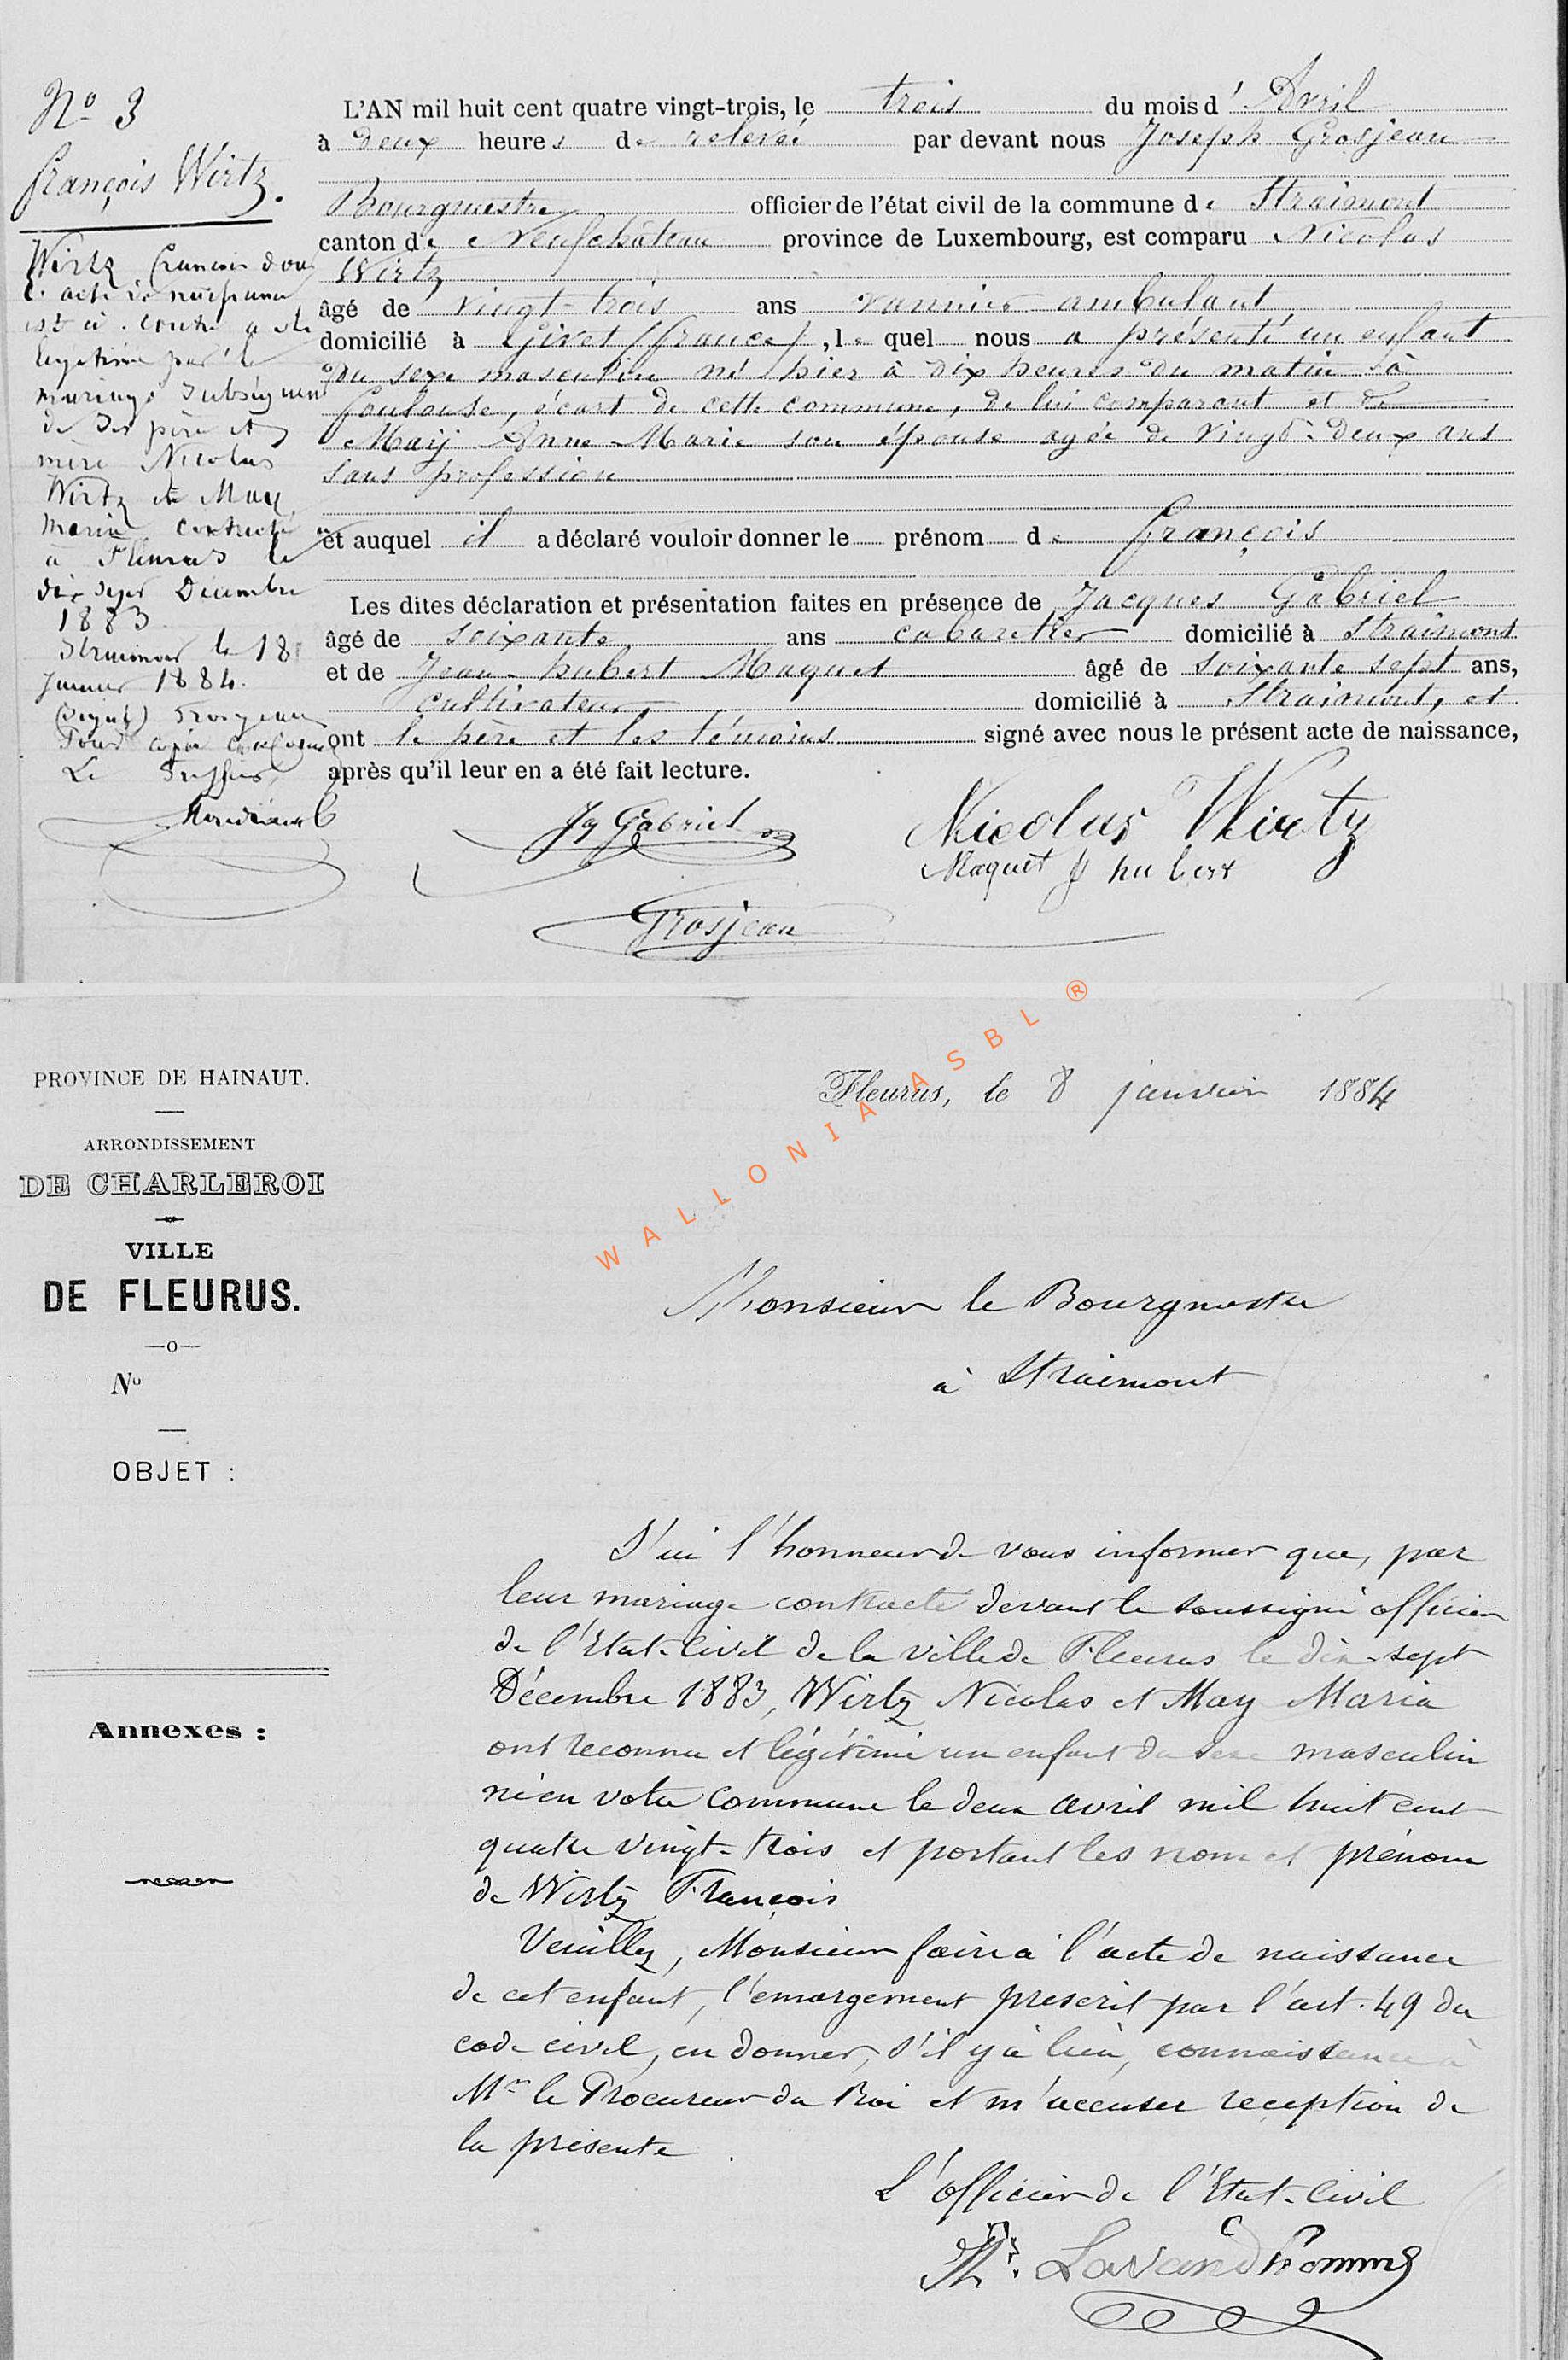 Nº 3
François Wirtz.
Wirtz François dont
l'acte de naissance
est ci-contre a été
légitimé par le
mariage subséquent
de ses père et
mère Nicolas
Wirtz et May
Maria contracté
à Fleurus le
dix sept Décembre
1883
Straimont le 18
Janvier 1884.
(signé) Grosjean
Pour copie conforme
Le Greffier
L'AN mil huit cent quatre vingt-trois, le trois du mois d' Avril
à deux heures de relevée par devant nous Joseph Grosjean
Bourgmestre officier de l'état civil de la commune de Straimont
canton de Neufchâteau province de Luxembourg, est comparu Nicolas
Wirtz
âgé de vingt-trois ans vannier ambulant
domicilié à Givet (France), le quel nous a présenté un enfant
du sexe masculin né hier à dix heures du matin à
Goulouse, écart de cette commune, de lui comparant et de
Maÿ Anne-Marie son épouse agée de vingt-deux ans
sans profession
et auquel il a déclaré vouloir donner le prénom de François
Les dites déclaration et présentation faites en présence de Jacques Gabriel
âgé de soixante ans cabaretier domicilié à Straimont
et de Jean-hubert Maquet âgé de soixante sept ans,
cultivateur domicilié à Straimont, et
ont le père et les témoins signé avec nous le présent acte de naissance,
après qu'il leur en a été fait lecture.
Jq Gabriel
Nicolas Wirtz
Maquet J hubert
Grosjean
WALLONIA ASBL ®
PROVINCE DE HAINAUT.
ARRONDISSEMENT
DE CHARLEROI
VILLE
DE FLEURUS.
Nº
OBJET :
Annexes :
Fleurus, le 8 janvier 1884
Monsieur le Bourgmestre
à Straimont
J'ai l'honneur de vous informer que, par
leur mariage contracté devant le soussigné officier
de l'Etat-civil de la ville de Fleurus le dix-sept
Décembre 1883, Wirtz Nicolas et May Maria
ont reconnu et légitimé un enfant du sexe masculin
né en votre commune le deux avril mil huit cent
quatre vingt-trois et portant les nom et prénom
de Wirtz François
Veuillez, Monsieur faire à l'acte de naissance
de cet enfant, l'emargement prescrit par l'art. 49 du
code civil, en donner, s'il y a lieu, connaissance à
Mr le Procureur du Roi et m'accuser reception de
la présente.
L'officier de l'Etat-Civil
Th. Lavandhomme